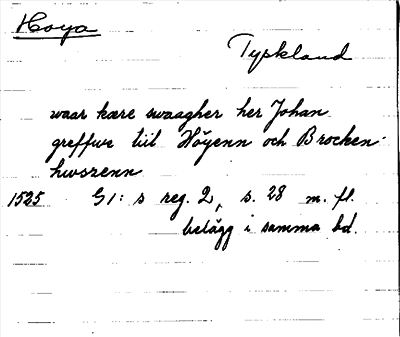 Hoya
Tyskland
waar kære swaagher her Johan
greffwe till Höyenn och Brocken-
hwszenn
1525 G1:s reg. 2, s. 28 m. fl.
belägg i samma bd.